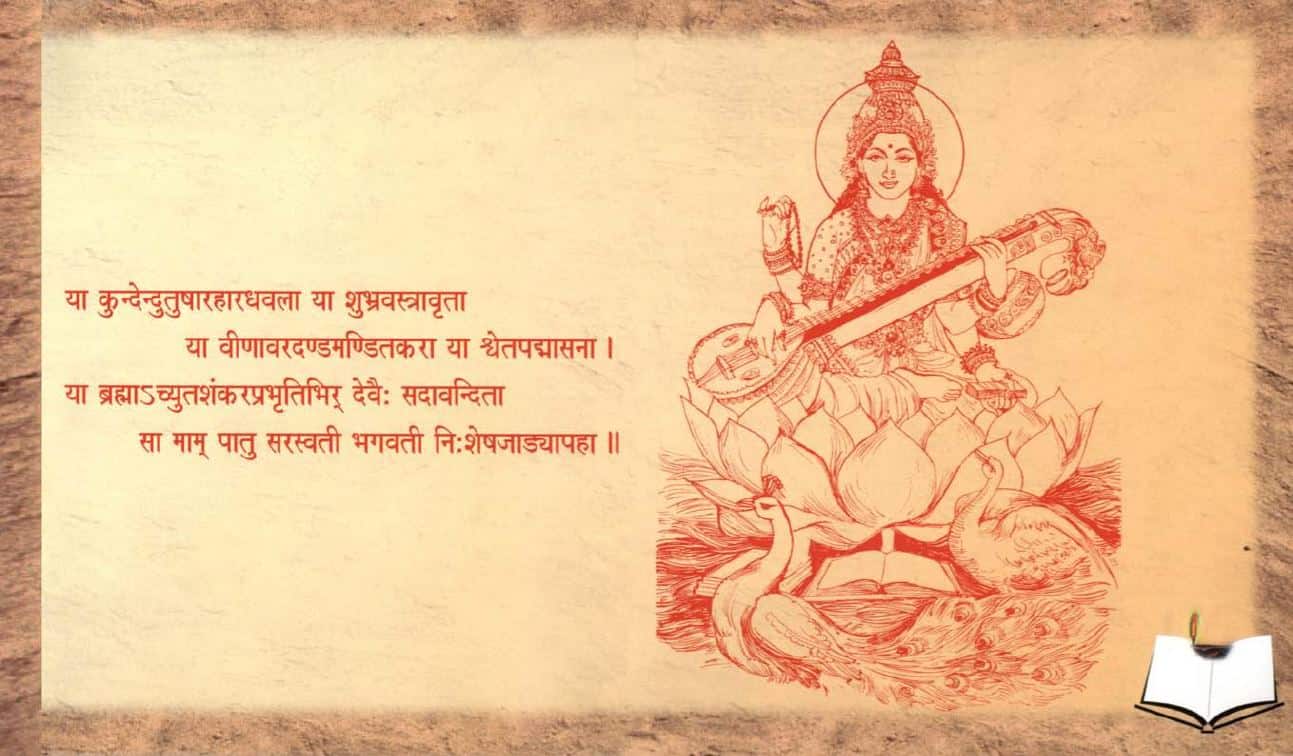 या कुन्देन्दुतुषारहारधवला या शुभ्रवस्त्रावृता
या वीणावरदण्डमण्डितकरा या श्वेतपद्मासना ।
या ब्रह्माऽच्युतशंकरप्रभृतिभिर् देवैः सदावन्दिता
सा माम् पातु सरस्वती भगवती निःशेषजाड्यापहा ॥